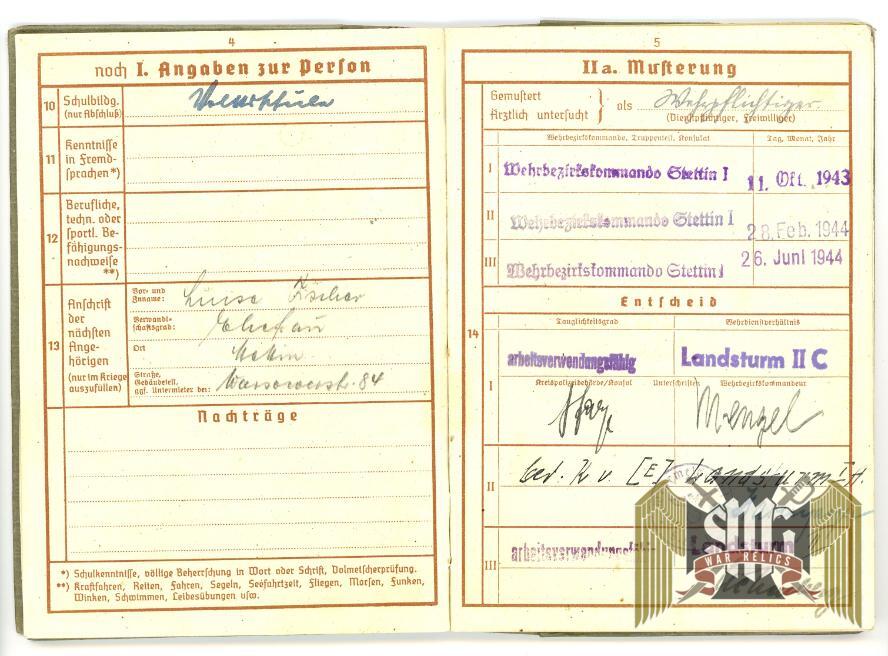 4
noch I. Angaben zur Person
10 Schulbildg. (nur Abschluß) Volksschule
11 Kenntnisse in Fremdsprachen *)
12 Berufliche, techn. oder sportl. Befähigungsnachweise **)
13 Anschrift der nächsten Angehörigen (nur im Kriege auszufüllen)
Vor- und Zuname: Luise Fischer
Verwandtschaftsgrad: Ehefrau
Ort Stettin
Straße, Gebäudeteil, ggf. Untermieter bei: 84
Nachträge
*) Schulkenntnisse, völlige Beherrschung in Wort oder Schrift, Dolmetscherprüfung.
**) Kraftfahren, Reiten, Fahren, Segeln, Seefahrtzeit, Fliegen, Morsen, Funken,
Winken, Schwimmen, Leibesübungen usw.
5
IIa. Musterung
Gemustert
Ärztlich untersucht } als Wehrpflichtiger
(Dienstpflichtiger, Freiwilliger)
Wehrbezirkskommando, Truppenteil, Konsulat Tag, Monat, Jahr
I Wehrbezirkskommando Stettin I 11. Okt. 1943
II Wehrbezirkskommando Stettin I 28. Feb. 1944
III Wehrbezirkskommando Stettin I 26. Juni 1944
Entscheid
14
Tauglichkeitsgrad Wehrdienstverhältnis
I arbeitsverwendungsfähig Landsturm II C
Kreispolizeibehörde/Konsul Unterschriften Wehrbezirkskommandeur
Menzel
II bed. K v. [E] Landsturm I
III arbeitsverwendungsfähig Landsturm
SMG
WAR RELICS